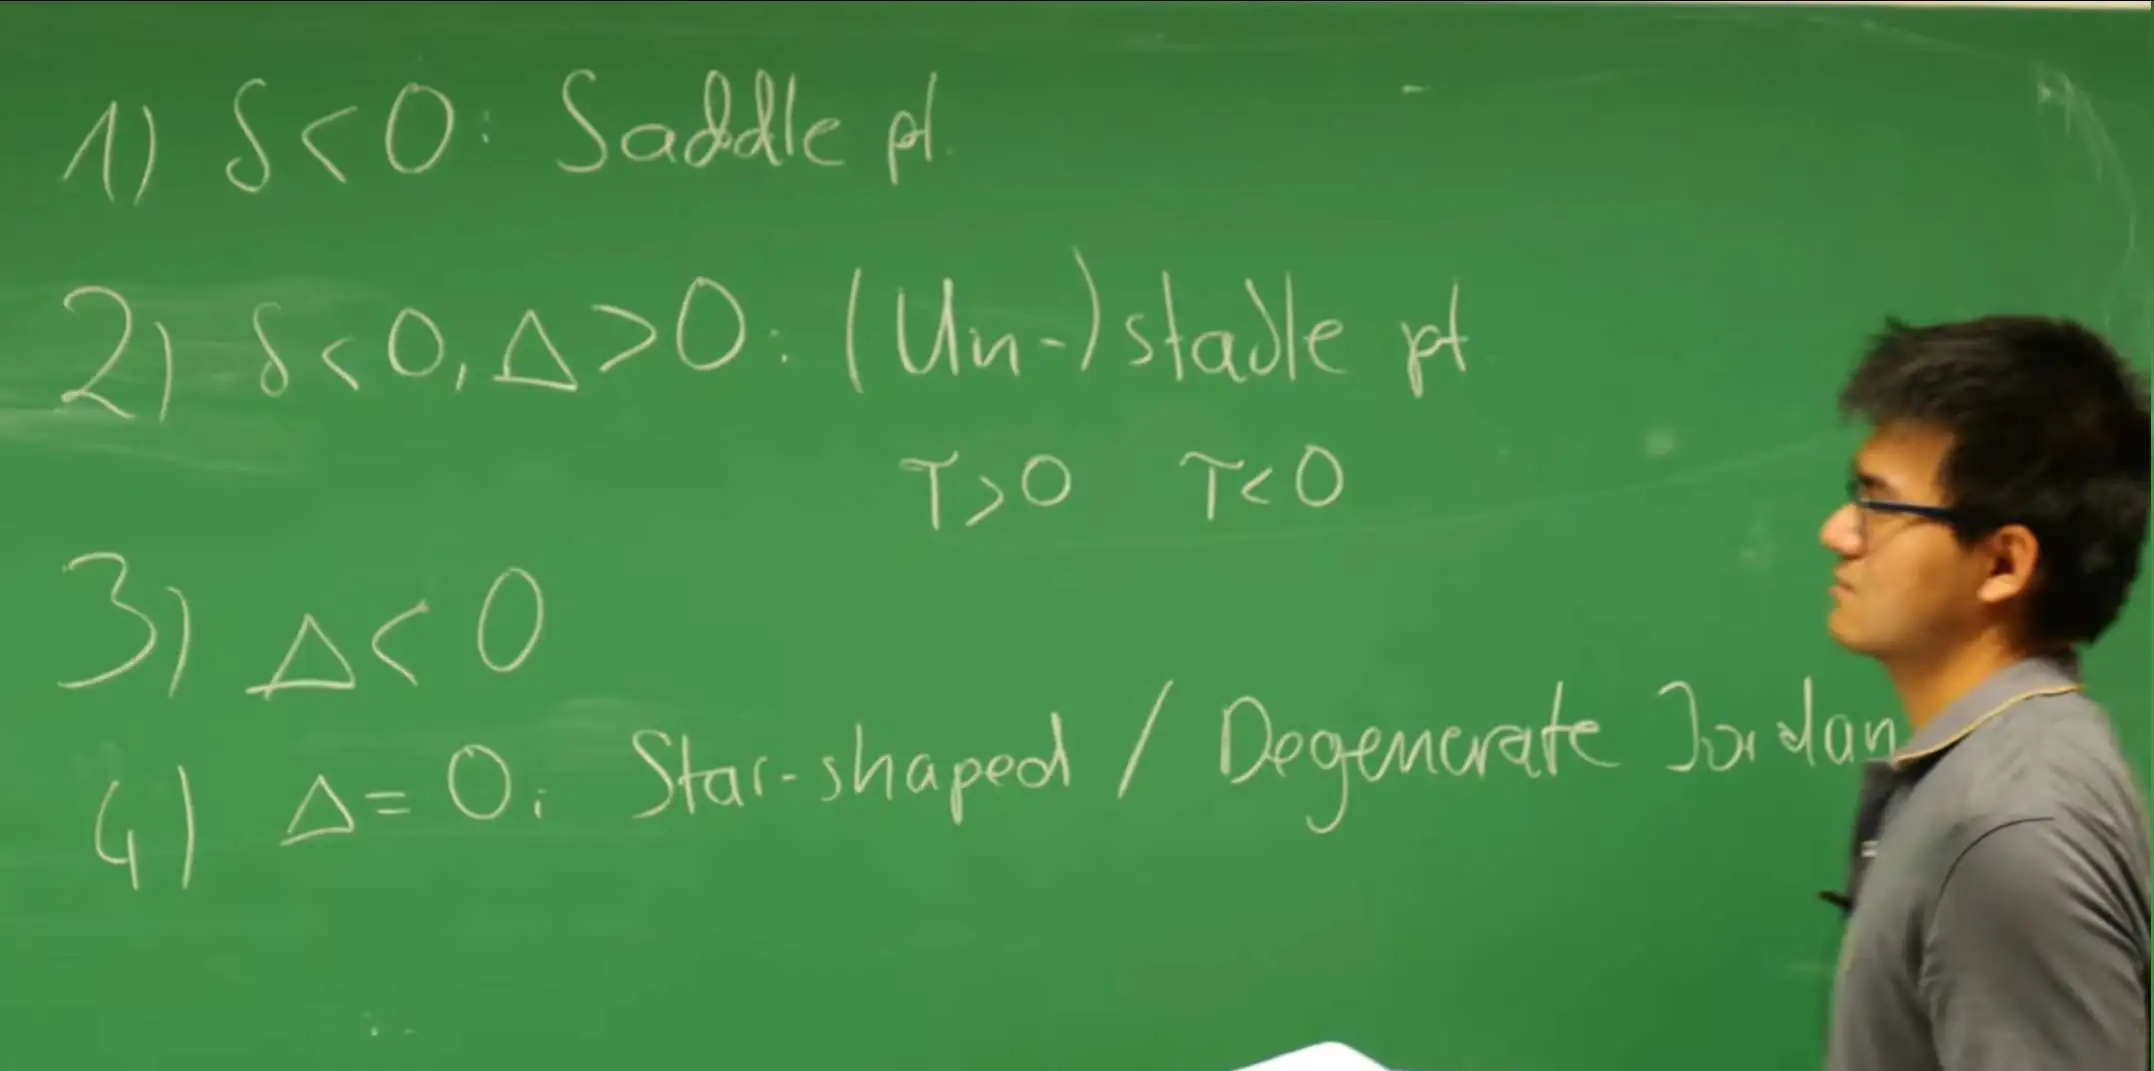 1) δ<0: Saddle pt.
2) δ<0, Δ>0: (Un-)stable pt.
τ>0 τ<0
3) Δ<0
4) Δ=0: Star-shaped / Degenerate Jordan